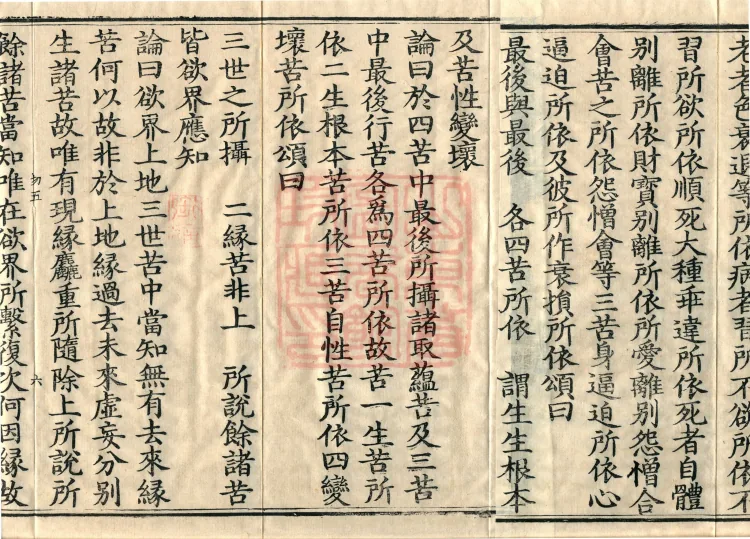 老者色衰退等所依病者習所不欲所依不
習所欲所依順死大種乖違所依死者自體
別離所依財寶別離所依所愛離別怨憎合
會苦之所依怨憎會等三苦身逼迫所依心
逼迫所依及彼所作衰損所依頌曰
最後與最後 各四苦所依 謂生生根本
及苦性變壞
論曰於四苦中最後所攝諸取蘊苦及三苦
中最後行苦各爲四苦所依故苦一生苦所
依二生根本苦所依三苦自性苦所依四變
壞苦所依頌曰
三世之所攝 二緣苦非上 所說餘諸苦
皆欲界應知
論曰欲界上地三世苦中當知無有去來緣
苦何以故非於上地緣過去未來虛妄分別
生諸苦故唯有現緣麤重所隨除上所說所
餘諸苦當知唯在欲界所繫復次何因緣故
六